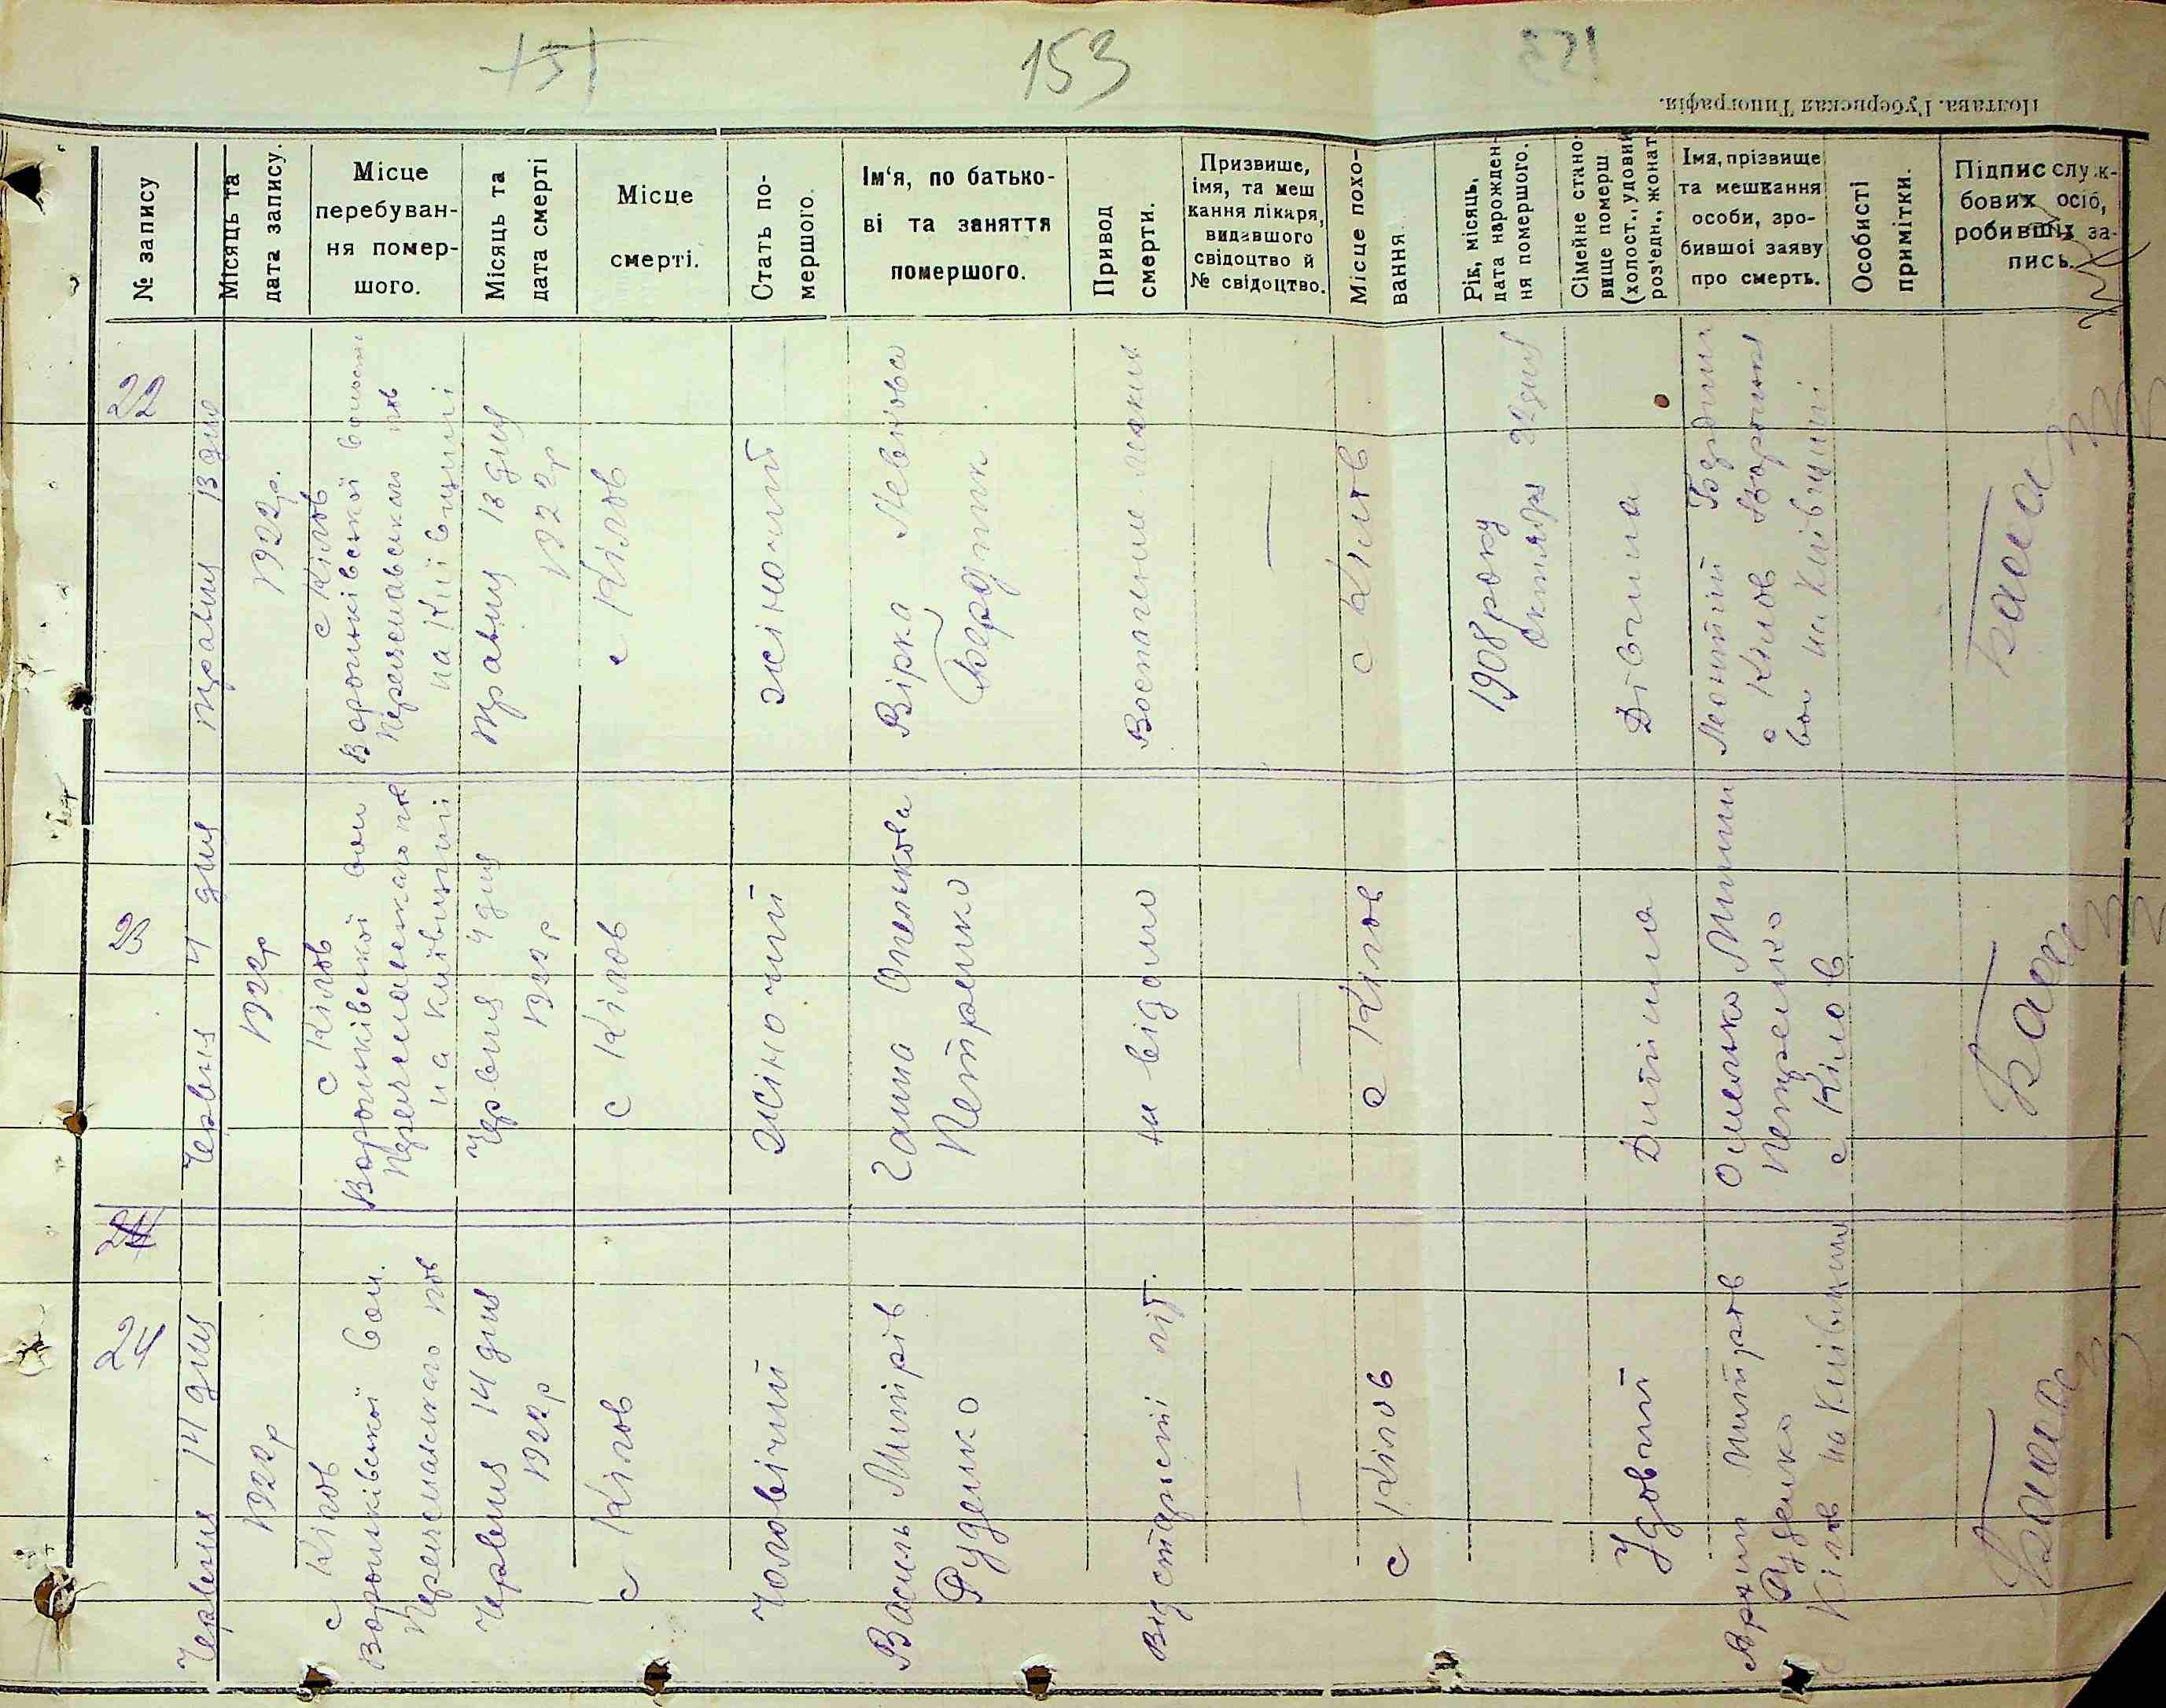 151
153
Полтава. Губернская Типографія.
№ запису
Місяць та
дата запису.
Місце
перебуван-
ня помер-
шого.
Місяць та
дата смерті
Місце
смерті.
Стать по-
мершого.
Ім'я, по батько-
ві та заняття
помершого.
Привод
смерти.
Призвище,
імя, та меш
кання лікаря,
видавшого
свідоцтво й
№ свідоцтво.
Місце похо-
вання
Рік, місяць,
дата народжен-
ня помершого.
Сімейне стано-
вище померш
(холост., удовий
роз'едн., жонат
Імя, прізвище
та мешкання
особи, зро-
бившоі заяву
про смерть.
Особисті
примітки.
Підпис служ-
бових осіб,
робивших за-
пись.
22
травня 13 дня
1922р.
с Кілов
Вороньківської волости
Переяславського пов
на Київщині
травня 13 дня
1922р
с Кілов
жіночий
Вірка
Бердник
Воспаление
с Кілов
1908 року
октября 22 дня
Дівчина
Бердник
с Кілов
вол на Київщині
23
Червня 4 дня
1922р
с Кілов
Вороньківської вол
Переяславського пов
на Київщині
Червня 4 дня
1922р
с Кілов
жіночий
Ганна Омелькова
Петренко
ни відомо
с Кілов
Дитина
Омелько
Петренко
с Кілов
24
24
Червня 14 дня
1922р
с Кілов
Вороньківської вол.
Переяславського пов
Червня 14 дня
1922р
с Кілов
Чоловічий
Василь Митрів
Руденко
Від старости літ.
с Кілов
Удовий
Митрів
Руденко
Кілов на Київщині